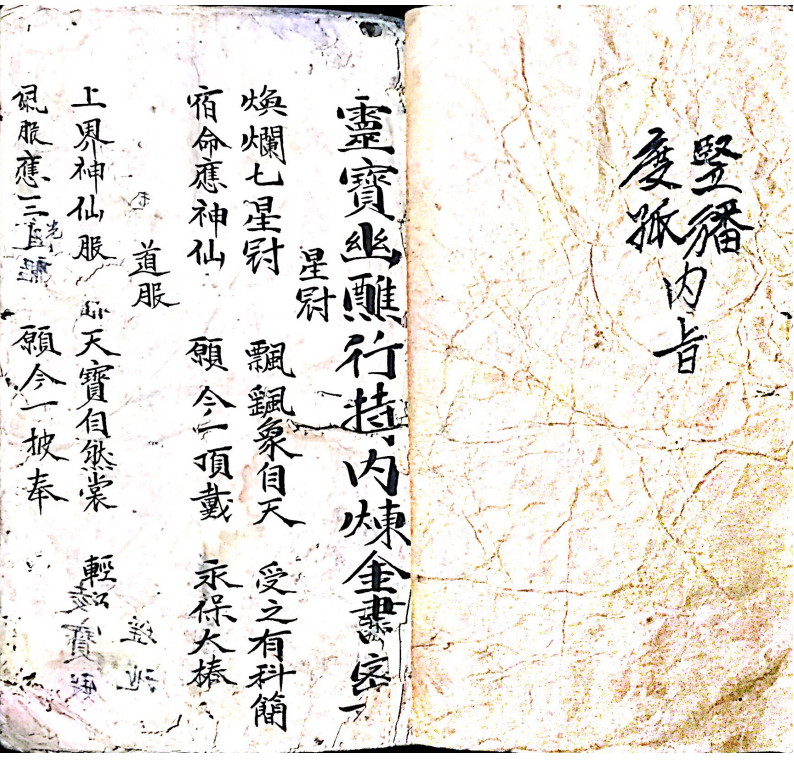 豎旛
度孤
内旨
靈寶幽醮行持内煉金書密
星冠
煥爛七星冠 飄飖象自天 受之有科簡
宿命應神仙 願今一頂戴 永保大椿
道服
上界神仙服 天寶自然裳 輕
佩服應三 願今一披奉